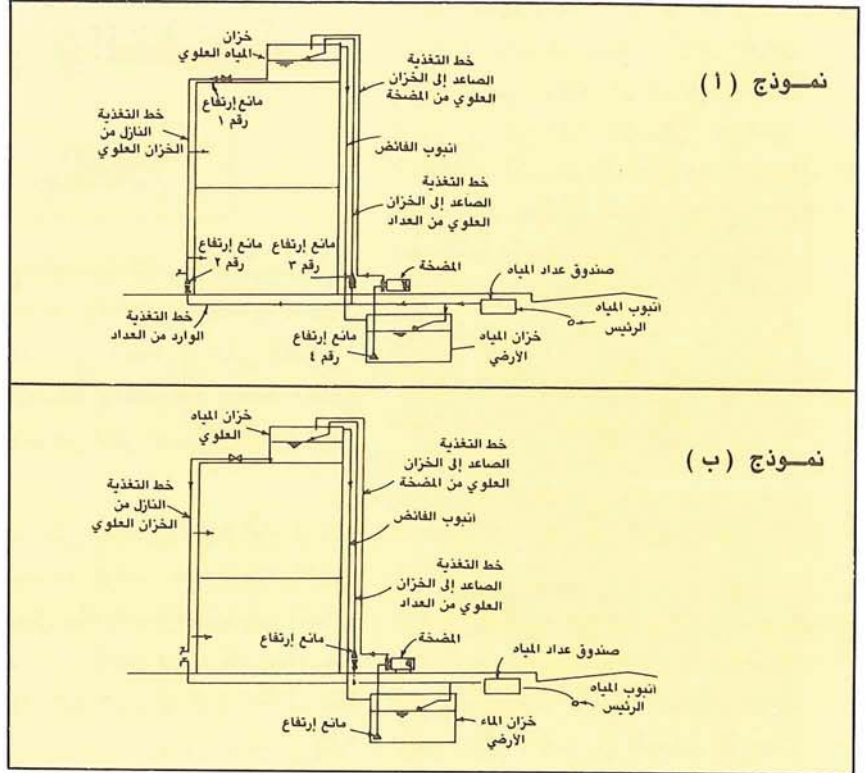 نمـوذج (أ)
خزان
المياه العلوي
خط التغذية
الصاعد إلى الخزان
العلوي من المضخة
مانع إرتفاع
رقم ١
خط التغذية
النازل من
الخزان العلوي
أنبوب الفائض
خط التغذية
الصاعد إلى الخزان
العلوي من العداد
مانع إرتفاع
رقم ٢
مانع إرتفاع
رقم ٣
المضخة
صندوق عداد المياه
أنبوب المياه
الرئيس
خط التغذية
الوارد من العداد
مانع إرتفاع
رقم ٤
خزان المياه
الأرضي
نمـوذج (ب)
خزان المياه
العلوي
خط التغذية
الصاعد إلى الخزان
العلوي من المضخة
خط التغذية
النازل من
الخزان العلوي
أنبوب الفائض
خط التغذية
الصاعد إلى الخزان
العلوي من العداد
مانع إرتفاع
المضخة
صندوق عداد المياه
أنبوب المياه
الرئيس
مانع إرتفاع
خزان الماء
الأرضي